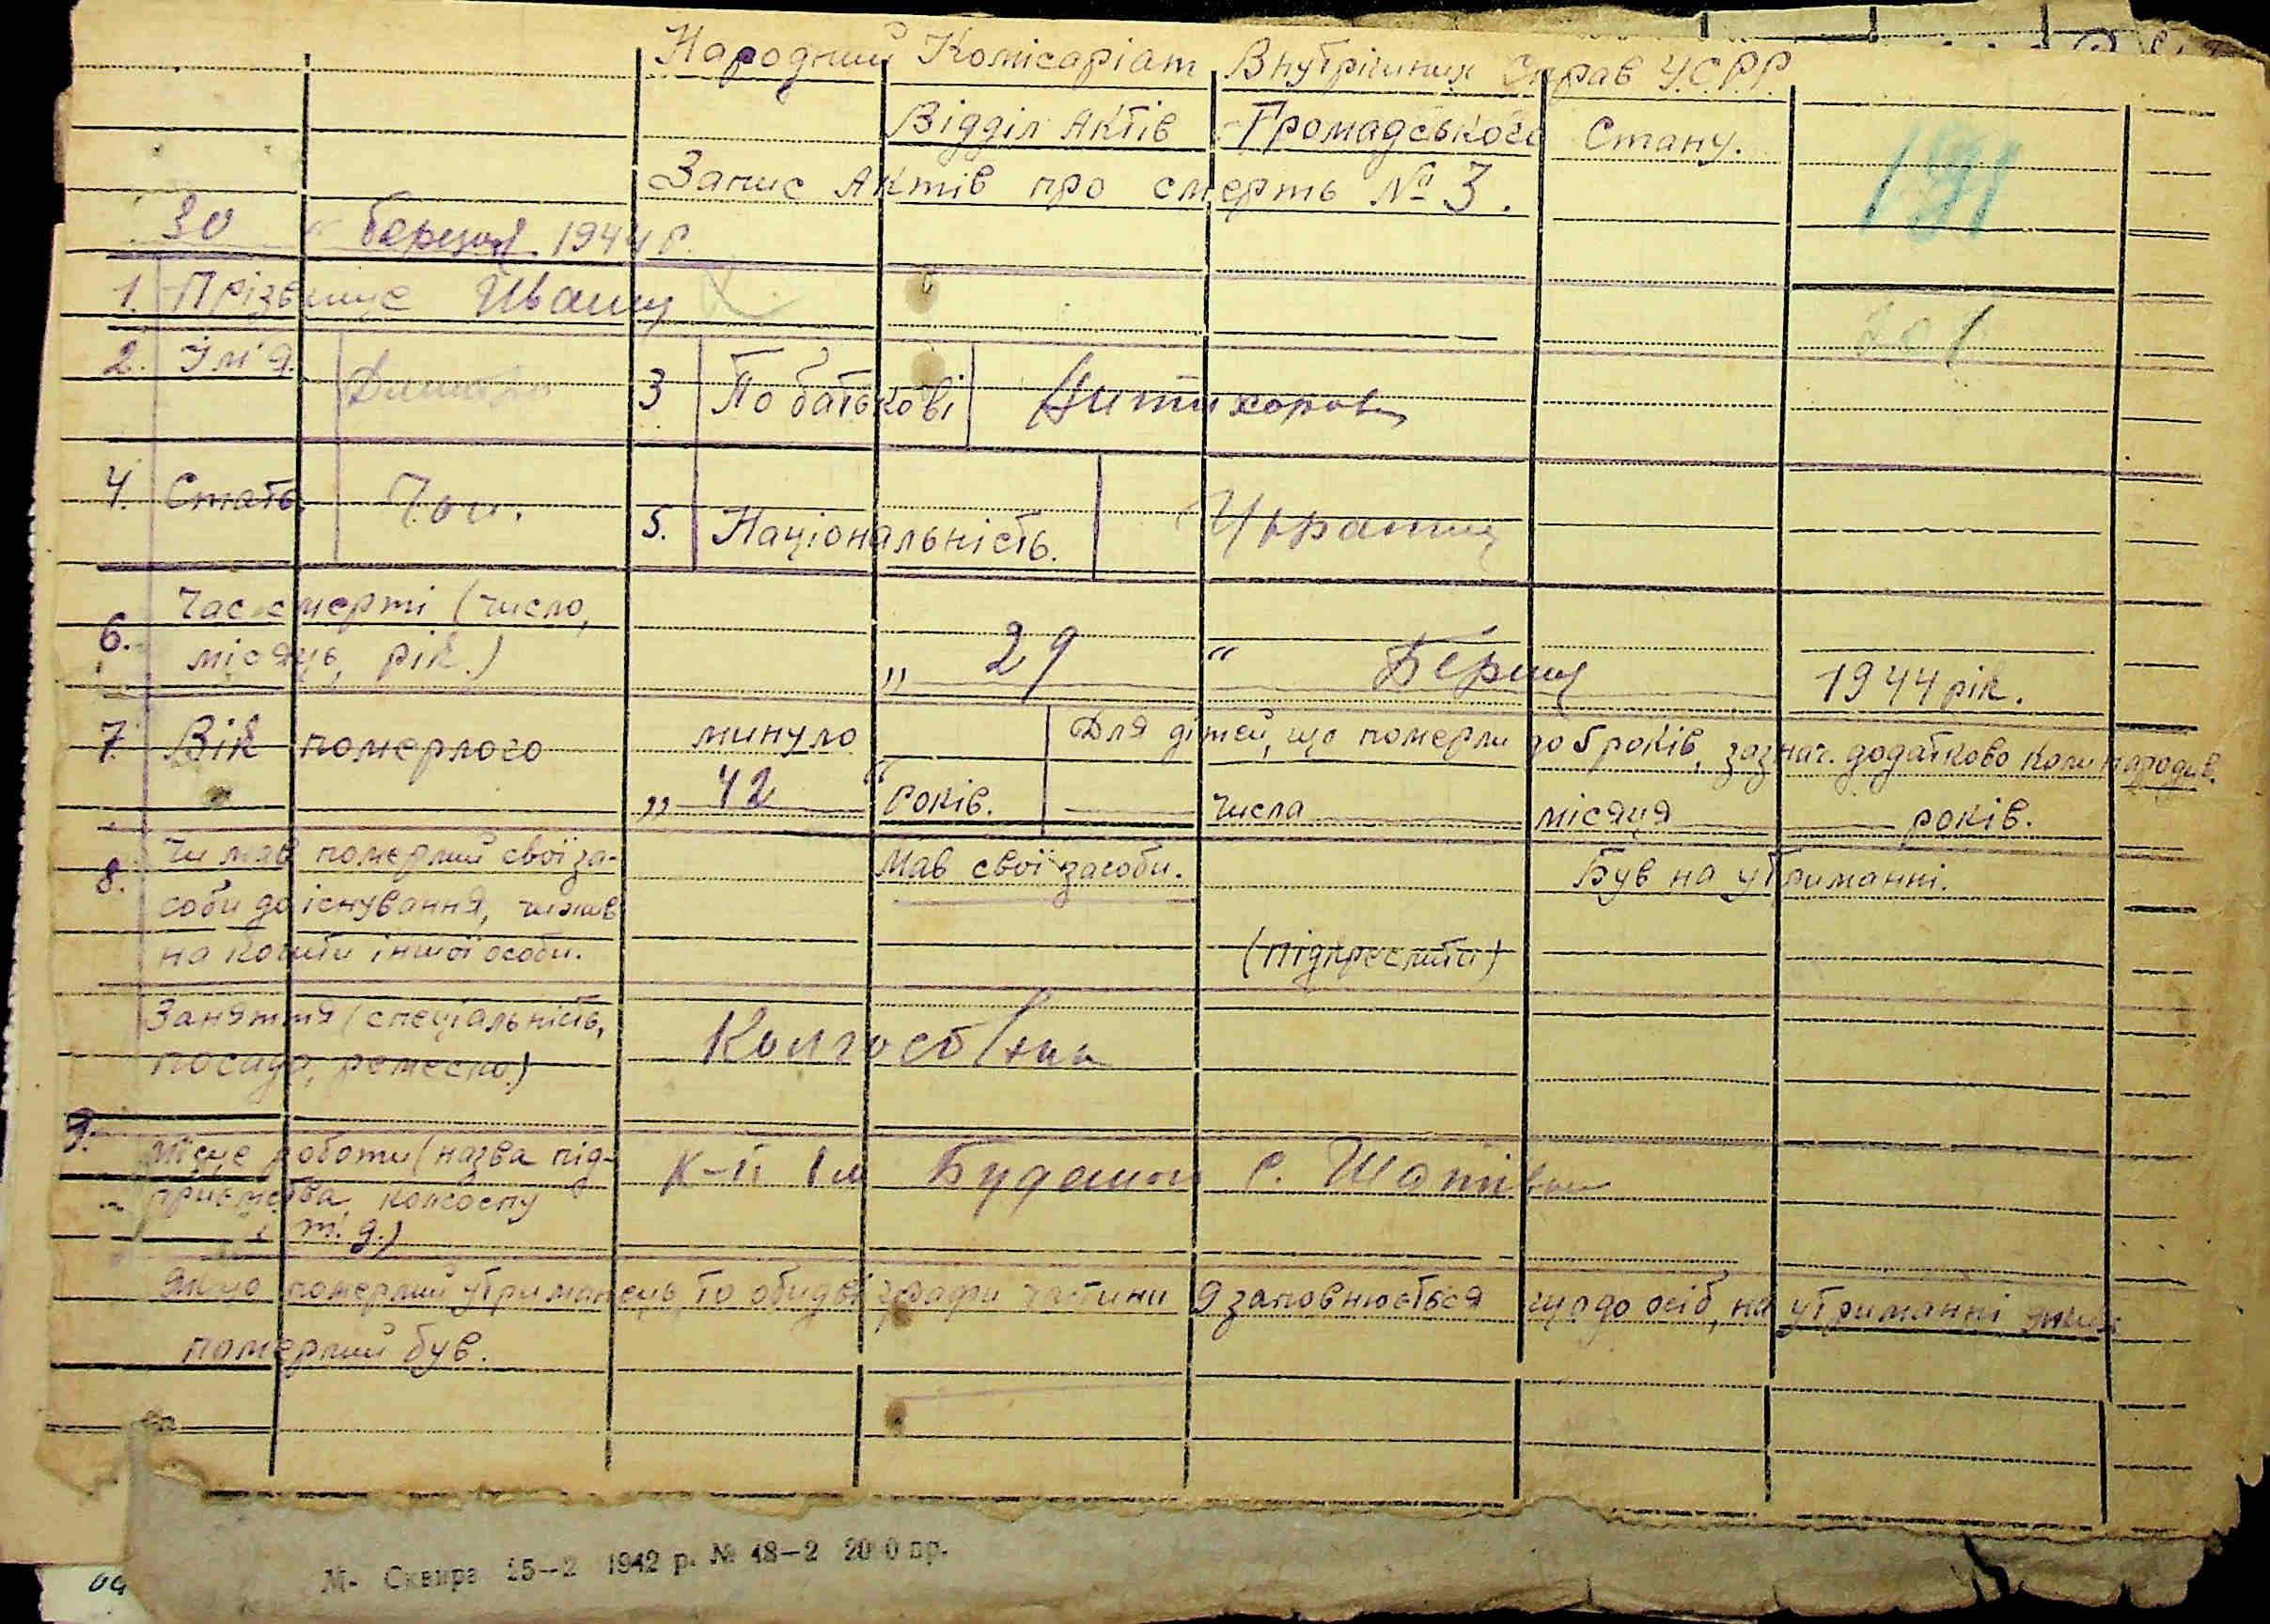 Народний Комісаріат Внутрішніх Справ У.С.Р.Р.
Відділ Актів Громадського Стану.
Запис Актів про смерть № 3.
191
30 березня 1944 р.
1. Прізвище
201
2. Ім'я. 3 По батькові
4. Стать Чол. 5. Національність.
6. Час смерті (число, місяць, рік.) „ 29 “ 1944 рік.
7. Вік померлого минуло „ 42 “ Років.
Для дітей, що померли до 5 років, зазнач. додатково коли народив.
числа місяця років.
8. Чи мав померлий свої за-
соби до існування, чи жив
на кошти іншої особи.
Мав свої засоби. Був на утриманні.
(підкреслити)
Заняття (спеціальність,
посада, ремесло.)
9. Місце роботи (назва під-
приємства, колгоспу
і т. д.)
К-п Ім Будьон С.
Якщо померлий утриманець, то обидві графи частини 9 заповнюється щодо осіб, на утриманні яких
померлий був.
М. Сквира 25—2 1942 р. № 48—2 2000 пр.